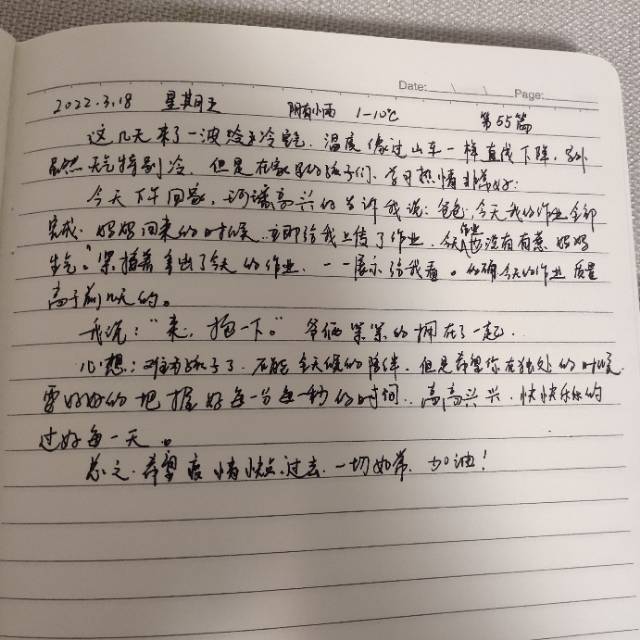 Date: Page:
2022.3.18 星期五 阴有小雨 1-10℃ 第55篇
这几天来了一波冷空气,温度像过山车一样直线下降,室外
虽然天气特别冷,但是在家里的孩子们,学习热情非常好:
今天下午回家,高兴的告诉我说:爸爸,今天我的作业全部
完成,妈妈回来的时候,立即给我上传了作业,今天作业没有惹妈妈
生气。紧接着拿出了今天的作业,一一展示给我看。的确今天的作业质量
高于前几天的。
我说:“来,抱一下。”爷俩紧紧的拥在了一起.
心想:难为孩子了,不能全天候的陪伴,但是希望你在独处的时候,
要好好的把握好每一分每一秒的时间,高高兴兴,快快乐乐的
过好每一天。
总之,希望疫情快点过去,一切如常,加油!